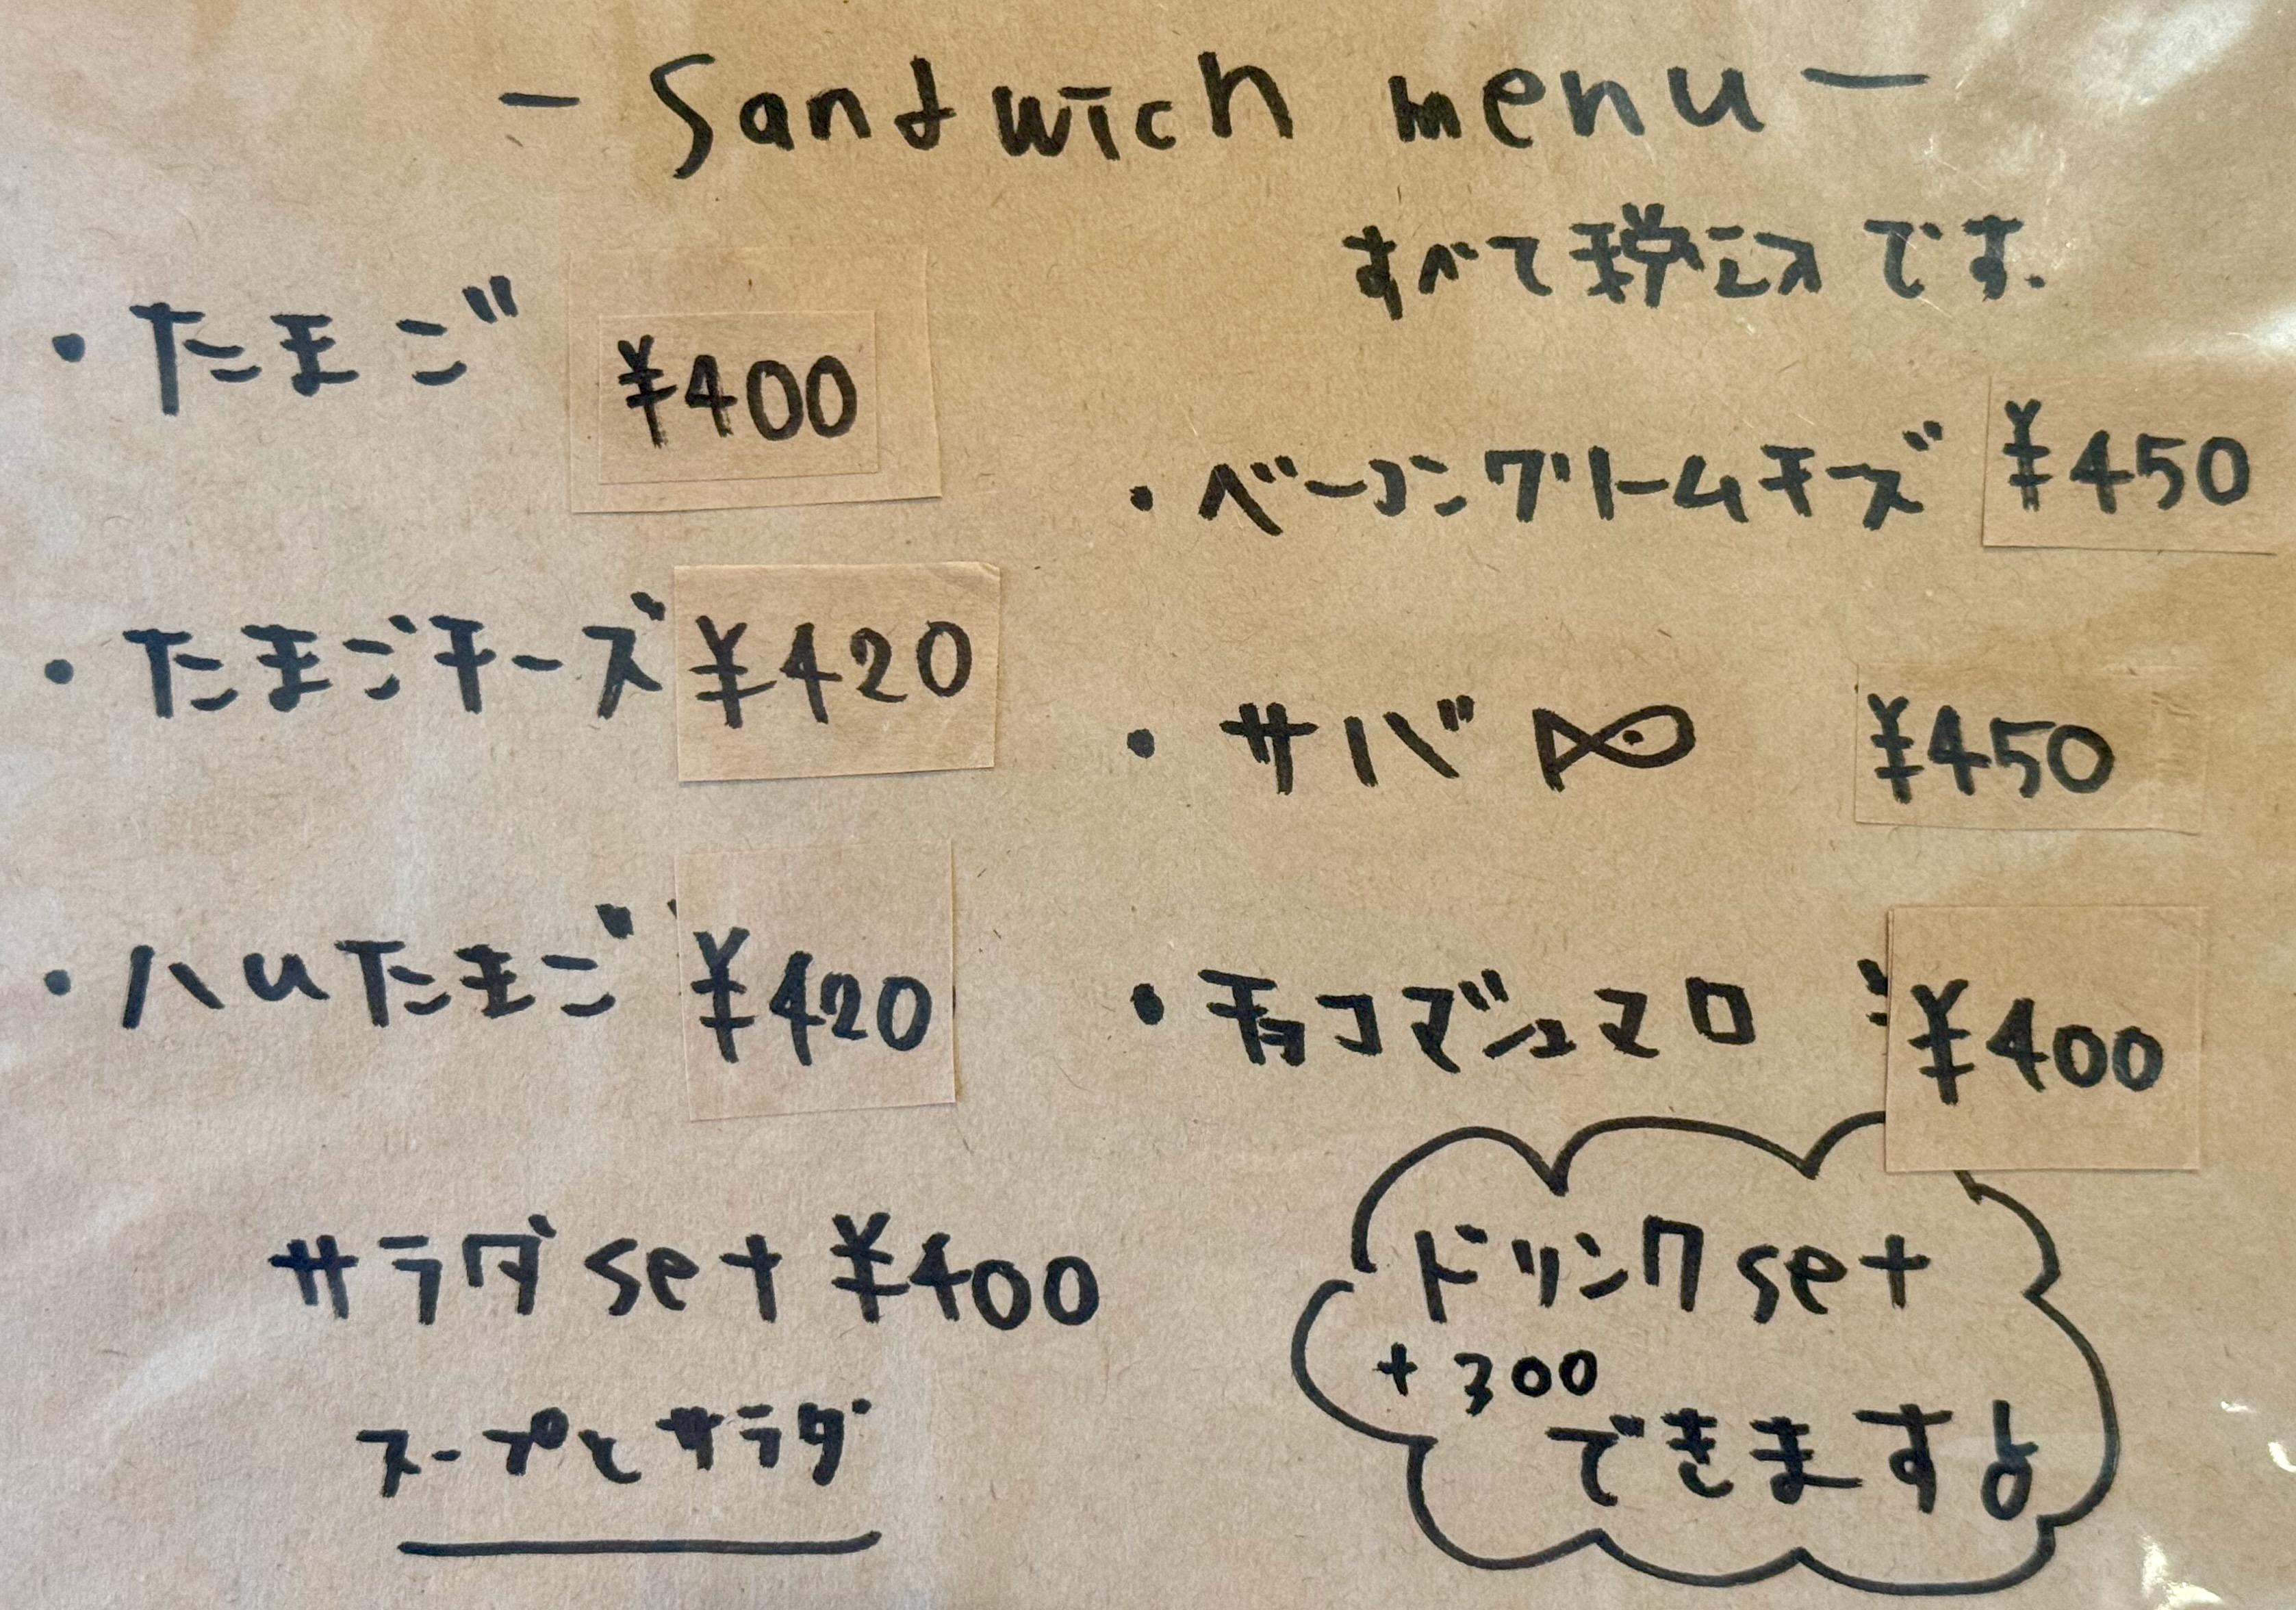 - Sandwich menu -
すべて税込です.
・たまご ¥400
・たまごチーズ ¥420
・ハムたまご ¥420
・ベーコンクリームチーズ ¥450
・サバ ¥450
・チョコマシュマロ ¥400
サラダset ¥400
スープとサラダ
ドリンクset
+300
できますよ